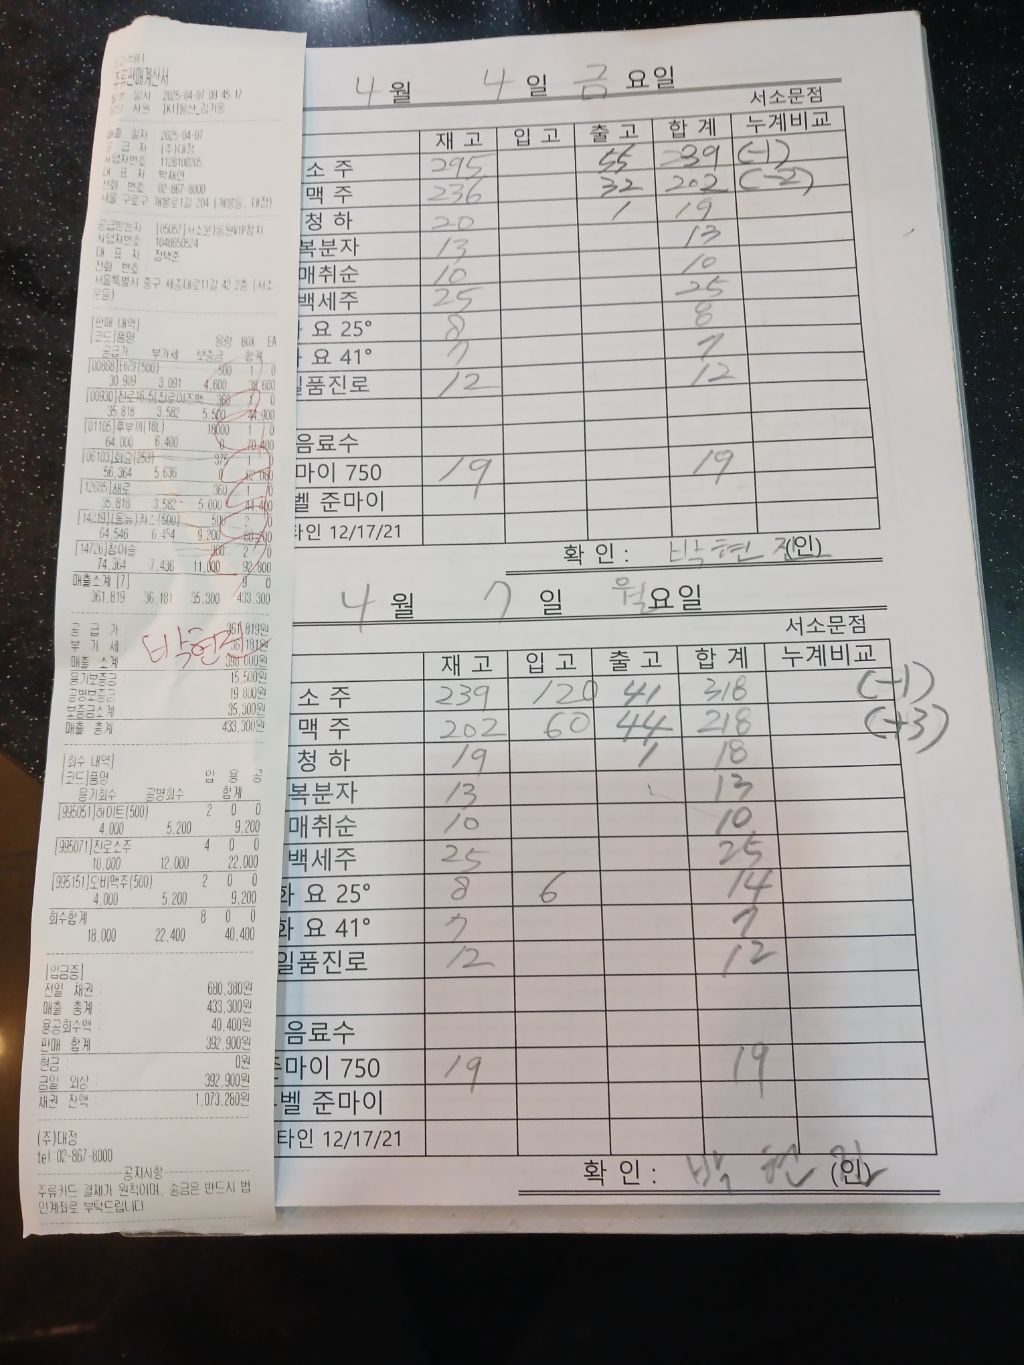 주류판매계산서
일시 2025-04-07 09:45:17
사원 [K1]용산_김기웅
매출 일자 2025-04-07
공 급 자 (주)대정
사업자번호 1128100205
대 표 자 박재연
전화 번호 02-867-8000
서울 구로구 개봉로1길 204 (개봉동, 대정)
공급받는자 [05057]서소문)동원VIP참치
사업자번호 1048650524
대 표 자 정택준
전화 번호
서울특별시 중구 세종대로11길 42 2층 (서소
문동)
[판매 내역]
[코드]품명 용량 BOX EA
공급가 부가세 보증금 합계
[00868]테라(500) 500 1 0
30,909 3,091 4,600 38,600
360 1 0
35,818 3,582 5,500 44,900
18000 1 0
64,000 6,400 0 70,400
375 1 0
56,364 5,636 0 62,000
[12685]새로 360 1 0
35,818 3,582 5,000 44,400
카스(500) 500 2 0
64,546 6,454 9,200 80,200
[14726]참이슬 360 2 0
74,364 7,436 11,000 92,800
매출소계 [7] 9 0
361,819 36,181 35,300 433,300
공 급 가 : 361,819원
부 가 세 : 36,181원
박현진
매출 소계 398,000원
용기보증금: 15,500원
공병보증금 19,800원
보증금소계 35,300원
매출 총계 433,300원
[회수 내역]
[코드]품명 입 용 공
용기회수 공병회수 합계
[995051]하이트(500) 2 0 0
4,000 5,200 9,200
[995071]진로소주 4 0 0
10,000 12,000 22,000
[995151]오비맥주(500) 2 0 0
4,000 5,200 9,200
회수합계 8 0 0
18,000 22,400 40,400
[입금증]
전일 채권 : 680,380원
매출 총계 : 433,300원
용공회수액 : 40,400원
판매 합계 : 392,900원
현금 : 0원
금일 외상 : 392,900원
채권 잔액 : 1,073,280원
(주)대정
tel:02-867-8000
공지사항
주류카드 결제가 원칙이며, 송금은 반드시 법
인계좌로 부탁드립니다
4 월 4 일 금 요일
서소문점
재 고 입 고 출 고 합 계 누계비교
소 주 295 55 239 (-1)
맥 주 236 32 202 (-2)
청 하 20 1 19
복분자 13 13
매취순 10 10
백세주 25 25
요 25° 8 8
요 41° 7 7
일품진로 12 12
음료수
마이 750 19 19
벨 준마이
타인 12/17/21
확 인 : 박현진 (인)
4 월 7 일 월 요일
서소문점
재 고 입 고 출 고 합 계 누계비교
소 주 239 120 41 318 (-1)
맥 주 202 60 44 218 (+3)
청 하 19 1 18
복분자 13 13
매취순 10 10
백세주 25 25
화 요 25° 8 6 14
화 요 41° 7 7
일품진로 12 12
음료수
준마이 750 19 19
벨 준마이
타인 12/17/21
확 인 : 박현진 (인)